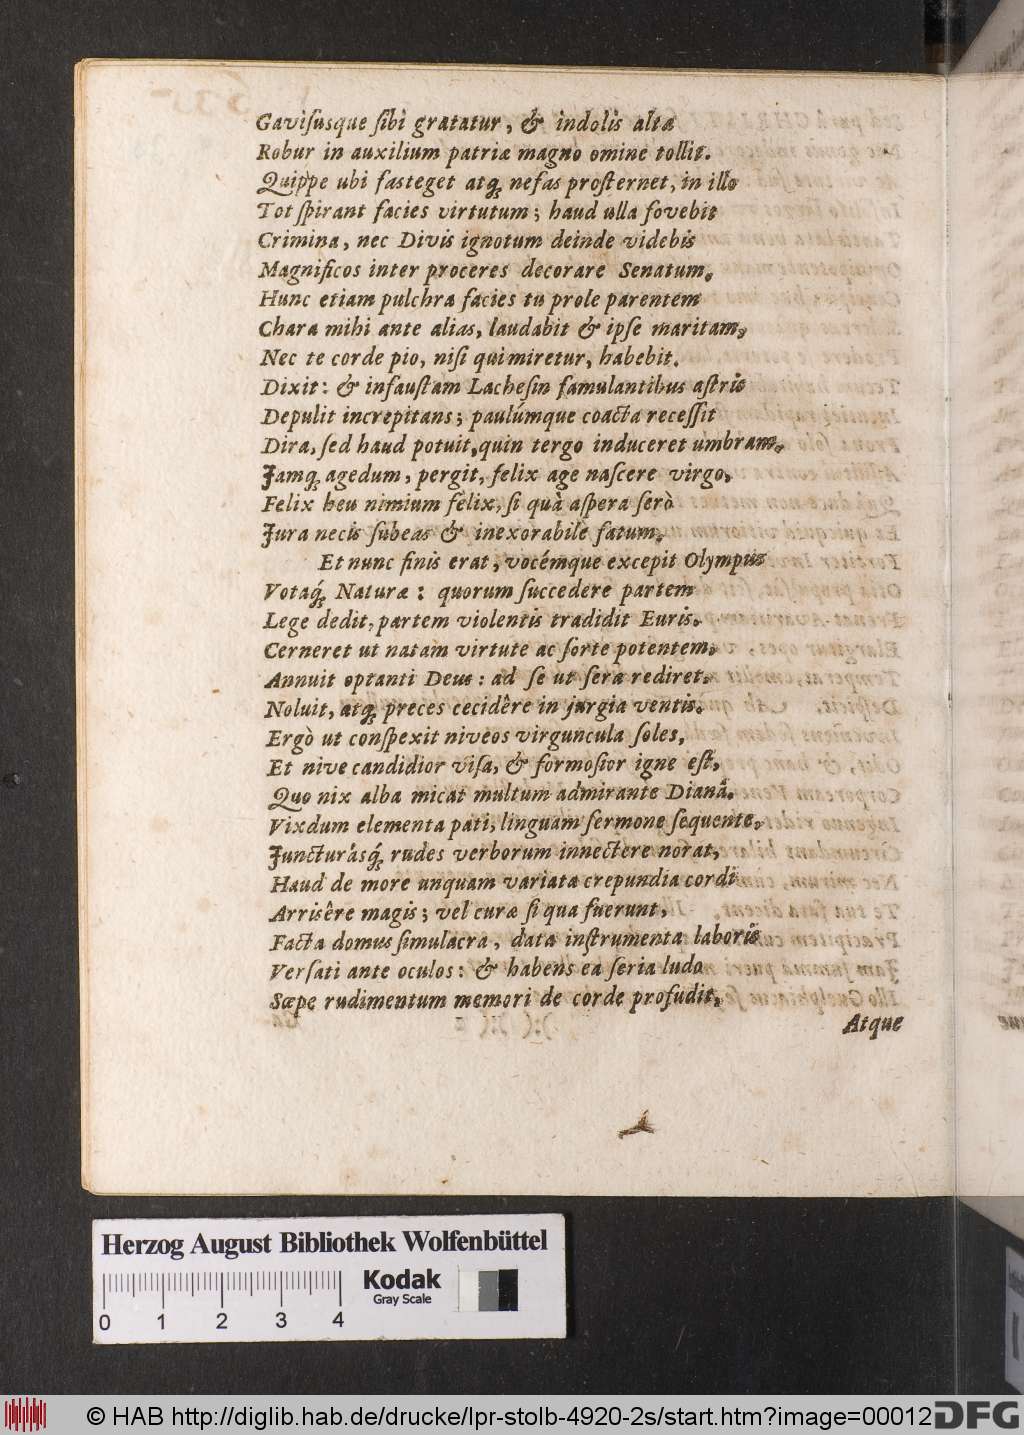 Gaviſusque ſibi gratatur, & indolis altæ
Robur in auxilium patriæ magno omine tollit.
Quippe ubi fasteget atq́; nefas proſternet, in illo
Tot ſpirant facies virtutum; haud ulla fovebit
Crimina, nec Divis ignotum deinde videbis
Magnificos inter proceres decorare Senatum.
Hunc etiam pulchra facies tu prole parentem
Chara mihi ante alias, laudabit & ipſe maritam,
Nec te corde pio, niſi qui miretur, habebit.
Dixit: & infauſtam Lacheſin famulantibus aſtris
Depulit increpitans; paulúmque coacta receſſit
Dira, ſed haud potuit, quin tergo induceret umbram.
Jamq́; agedum, pergit, felix age naſcere virgo,
Felix heu nimium felix, ſi quà aſpera ſerò
Jura necis ſubeas & inexorabile fatum.
Et nunc finis erat, vocémque excepit Olympus
Votaq́; Naturæ: quorum ſuccedere partem
Lege dedit, partem violentis tradidit Euris.
Cerneret ut natam virtute ac ſorte potentem,
Annuit optanti Deus: ad ſe ut ſera rediret,
Noluit, atq́; preces cecidêre in jurgia ventis.
Ergò ut conſpexit niveos virguncula ſoles,
Et nive candidior viſa, & formoſior igne eſt,
Quo nix alba micat multum admirante Dianâ.
Vixdum elementa pati, linguam ſermone ſequente,
Juncturásq́; rudes verborum innectere norat,
Haud de more unquam variata crepundia cordi
Arriſêre magis; vel curæ ſi qua fuerunt,
Facta domus ſimulacra, data inſtrumenta laboris
Verſati ante oculos: & habens ea ſeria ludo
Sæpe rudimentum memori de corde profudit,
Atque
Herzog August Bibliothek Wolfenbüttel
Kodak
Gray Scale
0 1 2 3 4
© HAB http://diglib.hab.de/drucke/lpr-stolb-4920-2s/start.htm?image=00012
DFG